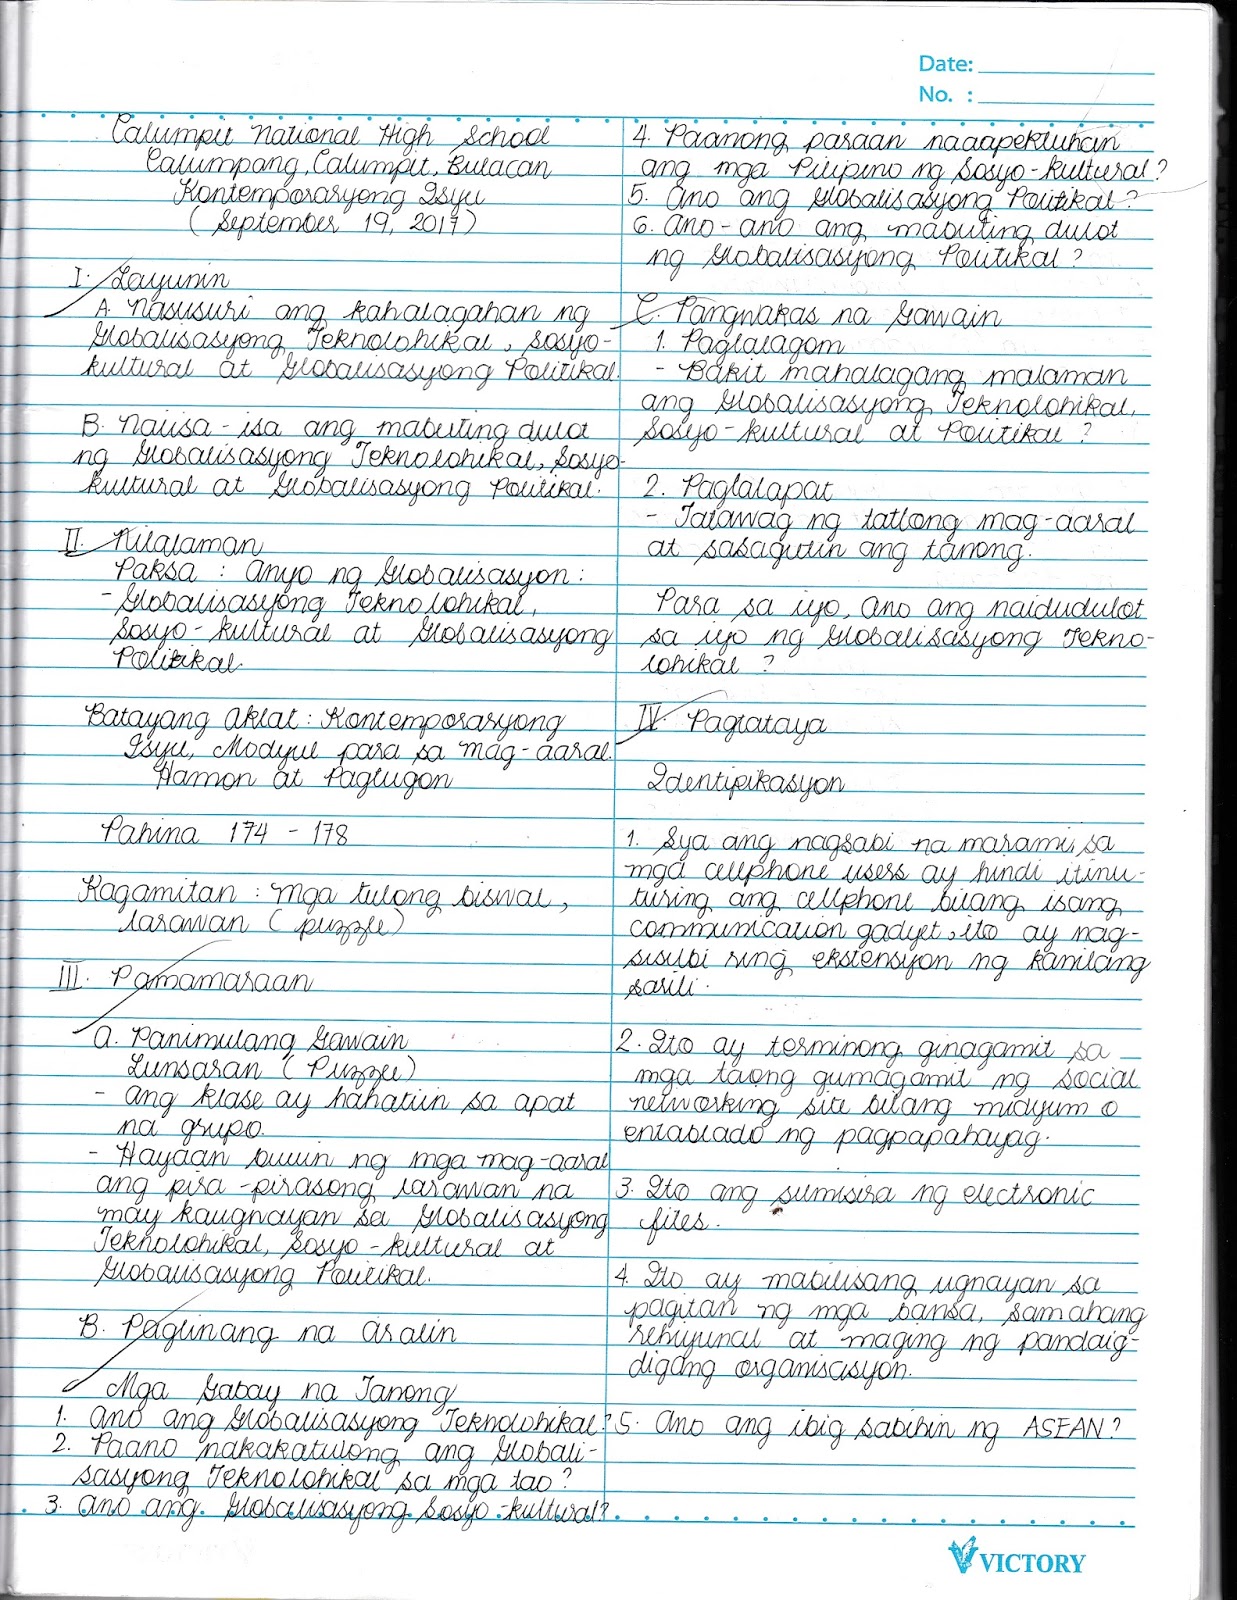 Date:
No. :
Calumpit National High School
Calumpang, Calumpit, Bulacan
Kontemporaryong Isyu
( September 19, 2017)
I. Layunin
A. Nasusuri ang kahalagahan ng
Globalisasyong Teknolohikal, Sosyo-
kultural at Globalisasyong Politikal.
B. Naiisa-isa ang mabuting dulot
ng Globalisasyong Teknolohikal, Sosyo-
kultural at Globalisasyong Politikal.
II. Nilalaman
Paksa : Anyo ng Globalisasyon :
- Globalisasyong Teknolohikal,
Sosyo-kultural at Globalisasyong
Politikal.
Batayang Aklat : Kontemporaryong
Isyu, Modyul para sa mag-aaral.
Hamon at Pagtugon
Pahina 174 - 178
Kagamitan : mga tulong biswal,
larawan ( puzzle)
III. Pamamaraan
A. Panimulang Gawain
Lunsaran ( Puzzle)
- Ang klase ay hahatiin sa apat
na grupo.
- Hayaan buuin ng mga mag-aaral
ang pira-pirasong larawan na
may kaugnayan sa Globalisasyong
Teknolohikal, Sosyo-kultural at
Globalisasyong Politikal.
B. Paglinang na Aralin
Mga Gabay na Tanong
1. Ano ang Globalisasyong Teknolohikal?
2. Paano nakakatulong ang Globali-
sasyong Teknolohikal sa mga tao?
3. Ano ang Globalisasyong Sosyo-kultural?
4. Paanong paraan naaapektuhan
ang mga Pilipino ng Sosyo-kultural?
5. Ano ang Globalisasyong Politikal?
6. Ano-ano ang mabuting dulot
ng Globalisasyong Politikal?
C. Pangwakas na Gawain
1. Paglalagom
- Bakit mahalagang malaman
ang Globalisasyong Teknolohikal,
Sosyo-kultural at Politikal?
2. Paglalapat
- Tatawag ng tatlong mag-aaral
at sasagutin ang tanong.
Para sa iyo, ano ang naidudulot
sa iyo ng Globalisasyong Tekno-
lohikal?
IV. Pagtataya
Identipikasyon
1. Sya ang nagsabi na marami sa
mga cellphone users ay hindi itinu-
turing ang cellphone bilang isang
communication gadyet, ito ay nag-
sisilbi ring ekstensyon ng kanilang
sarili.
2. Ito ay terminong ginagamit sa
mga taong gumagamit ng social
networking site bilang midyum o
entablado ng pagpapahayag.
3. Ito ang sumisira ng electronic
files.
4. Ito ay mabilisang ugnayan sa
pagitan ng mga bansa, samahang
rehiyunal at maging ng pandaig-
digang organisasyon.
5. Ano ang ibig sabihin ng ASEAN?
VICTORY